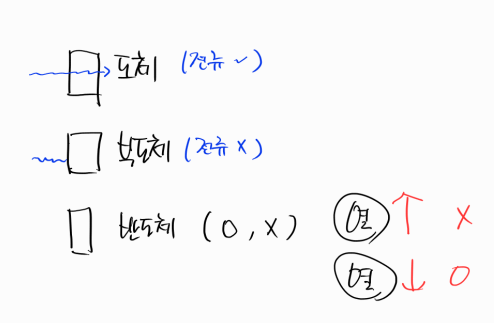 도체 (전류 ✓)
부도체 (전류 X)
반도체 (O, X) 열 ↑ X
열 ↓ O